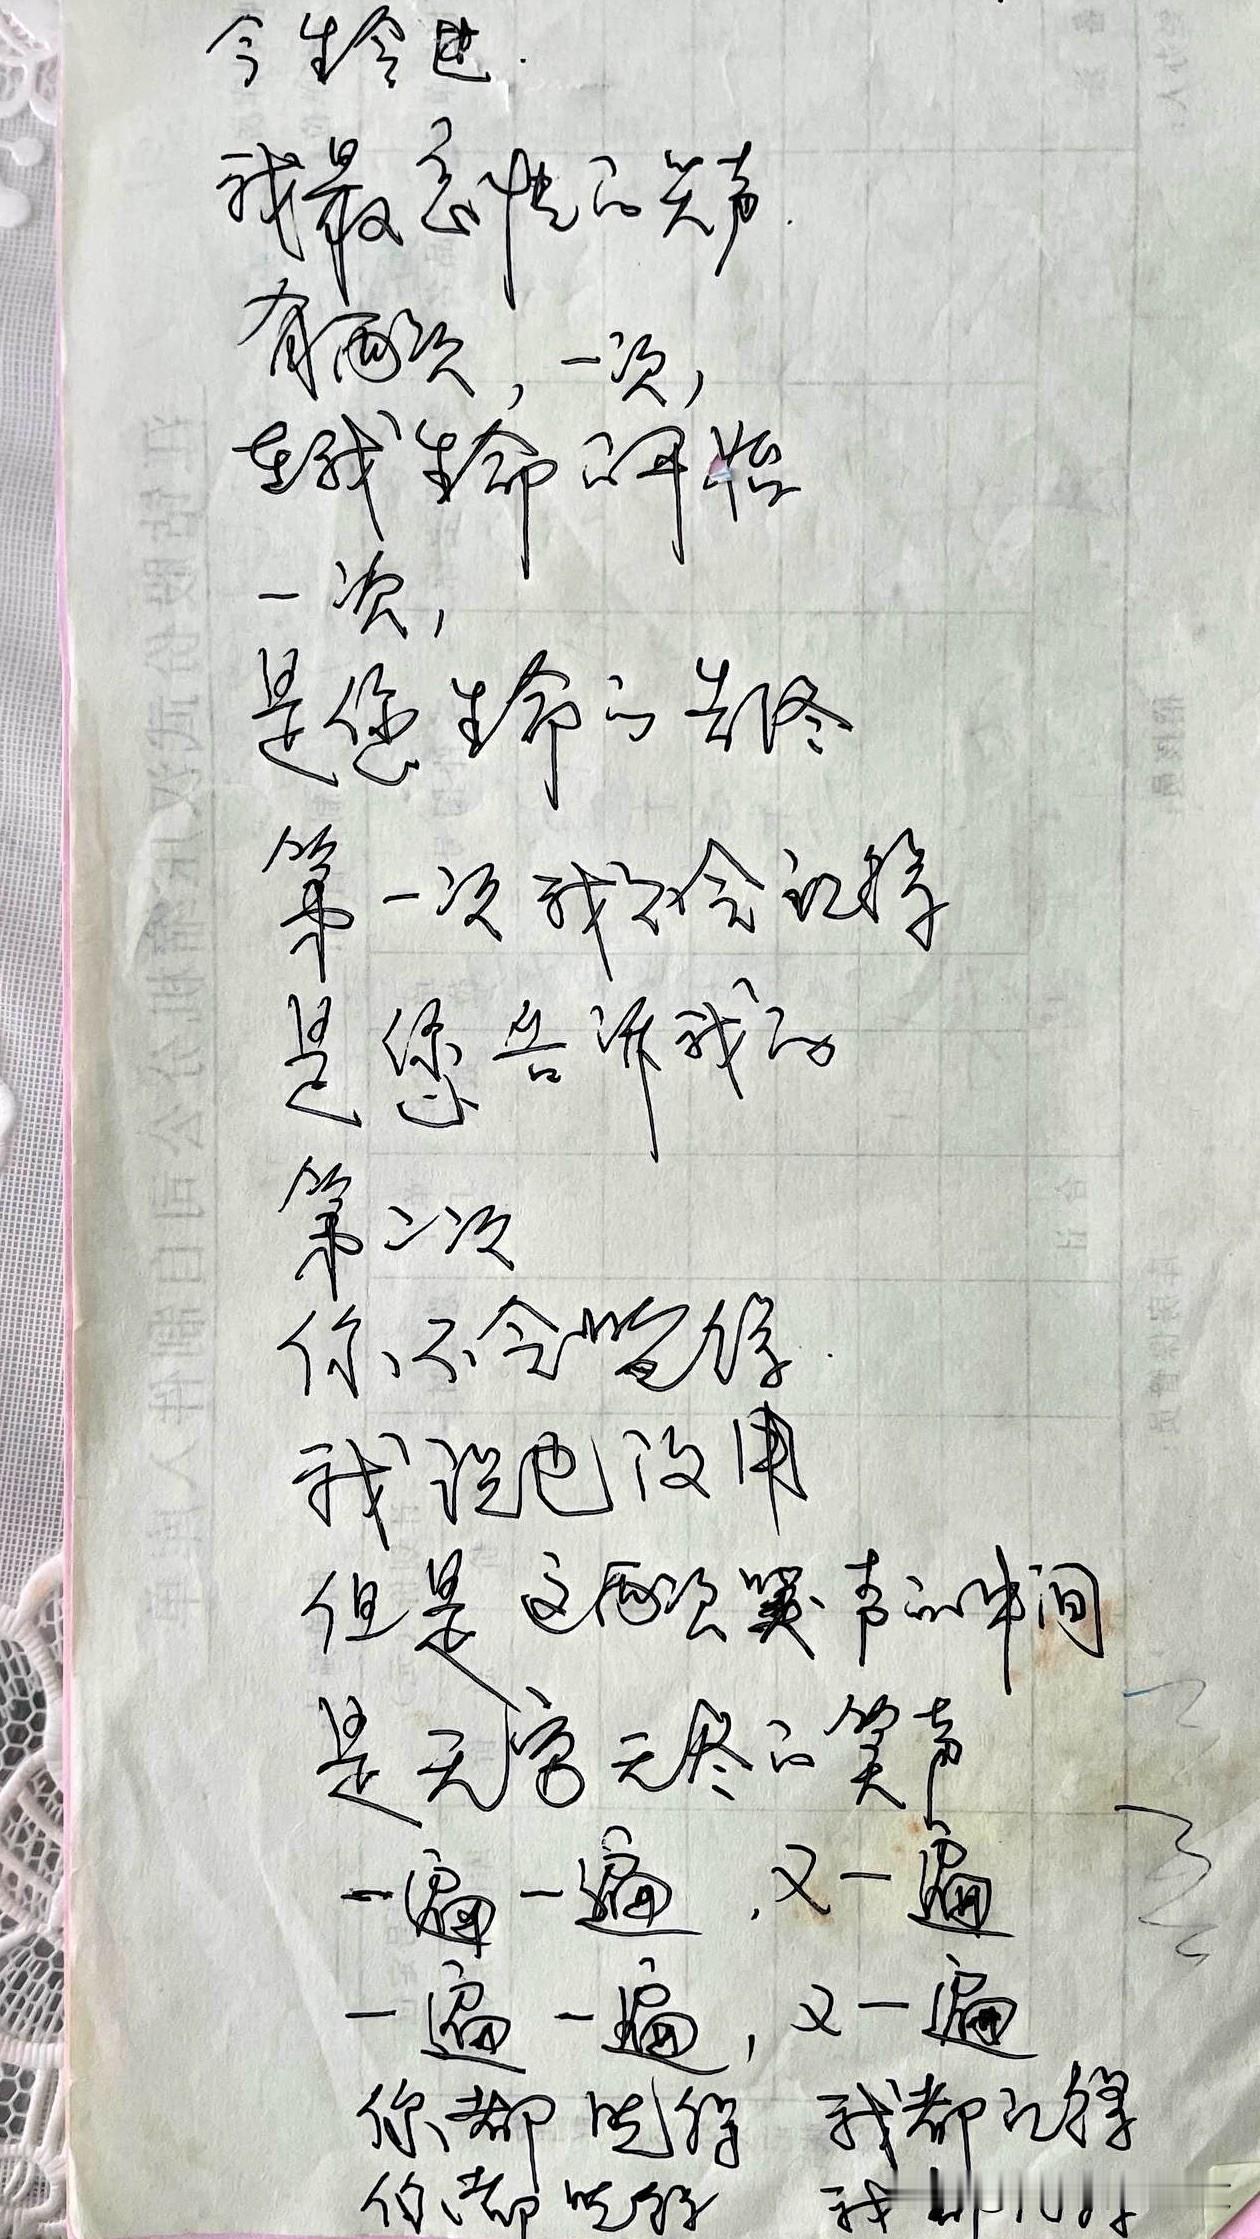 今生今世.
我最忘情的哭声.
有两次,一次,
在我生命的开始
一次,
是您生命的告终
第一次我不会记得
是您告诉我的
第二次
你不会晓得.
我说也没用
但是这两次哭声的中间
是无穷无尽的笑声
一遍一遍,又一遍
一遍一遍,又一遍
你都晓得 我都记得
你都晓得 我都记得